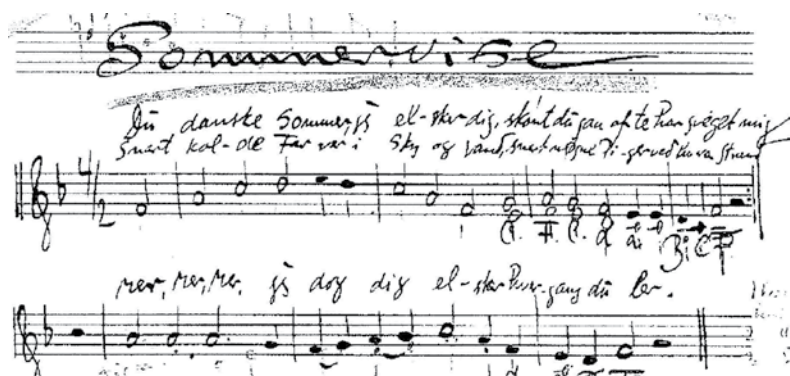 Sommervise
Du danske Sommer, jeg el-sker dig, skønt du saa ofte har sveget mig
Snart kol-de Far ver i Sky og Vand, snart nøgne Pi-ger ved hver en Strand
4/2
mer, mer, mer, jeg dog dig el-sker hver-gang du ler.